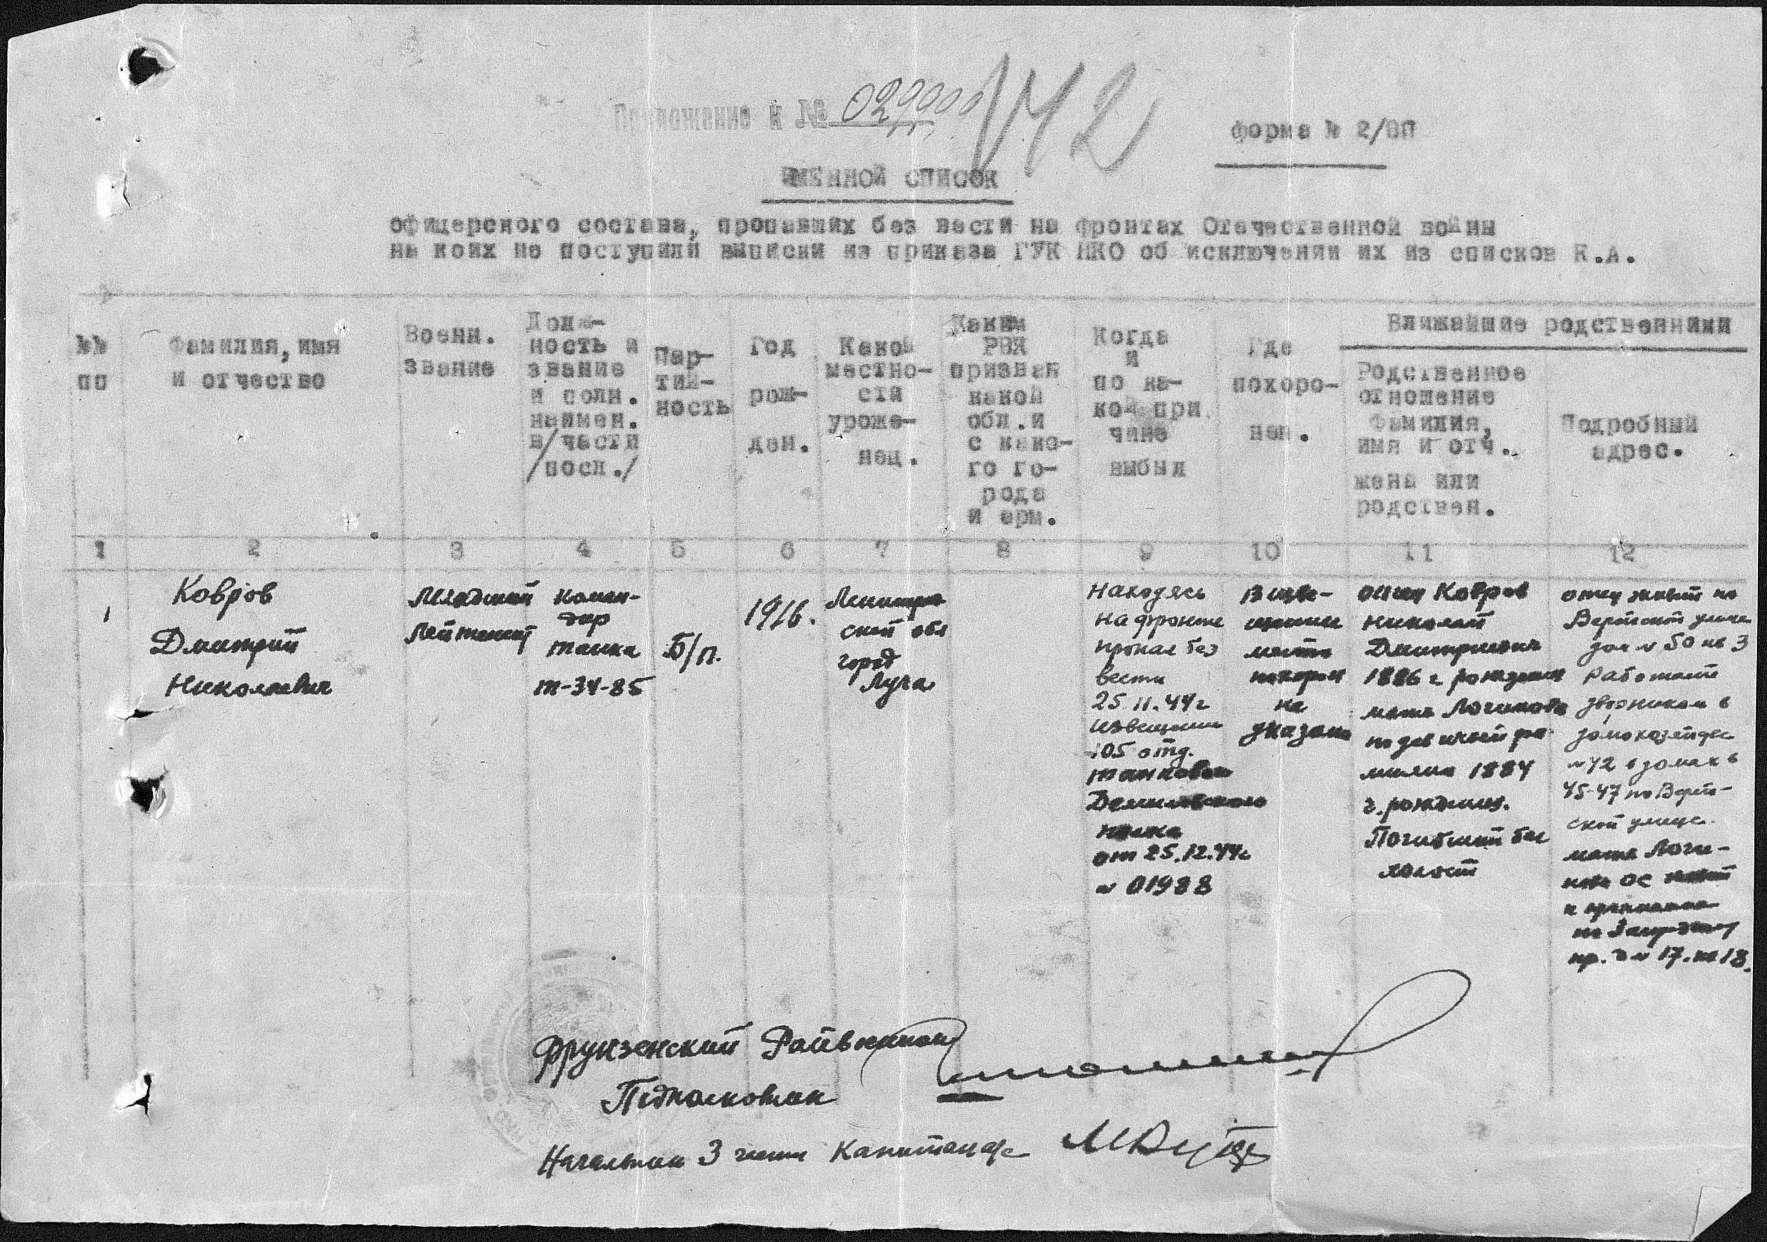 Приложение к № 029000
142
форма № 2/ВП
ИМЕННОЙ СПИСОК
офицерского состава, пропавших без вести на фронтах Отечественной войны
на коих не поступили выписки из приказа ГУК НКО об исключении их из списков К.А.
№№
пп
Фамилия, имя
и отчество
Военн.
звание
Долж-
ность и
звание
и полн.
наимен.
в/части
/посл./
Пар-
тий-
ность
Год
рож-
ден.
Какой
местно-
сти
уроже-
нец.
Каким
РВК
призван
какой
обл. и
с како-
го го-
рода
и арм.
Когда
и
по ка-
кой при
чине
выбыл
Где
похоро-
нен.
Ближайшие родственники
Родственное
отношение
Фамилия,
имя и отч.
жена или
родствен.
Подробный
адрес.
1 2 3 4 5 6 7 8 9 10 11 12
1
Ковров
Дмитрий
Николаевич
Младший
Лейтенант
коман-
дир
танка
т-34-85
Б/п.
1916.
ской обл
город
Луга
Находясь
на фронте
пропал без
вести
25.11.44г
извещение
105 отд.
танкового
полка
от 25.12.44г
№ 01988
В изве-
щении
место
похорон
не
указано
отец Ковров
Николай
Дмитриевич
1886 г рождения
мать Логинова
по девичьей фа-
милии 1884
г. рождения.
Погибший был
холост
отец живет по
улице
дом № 50 кв 3
Работает
дворником в
№ 42 в домах №
45-47 по
ской улице.
мать Логи-
нова ОС
пр. д № 17. кв 18.
Фрунзенский Райвоенком
Подполковник
Начальник 3 части Капитан